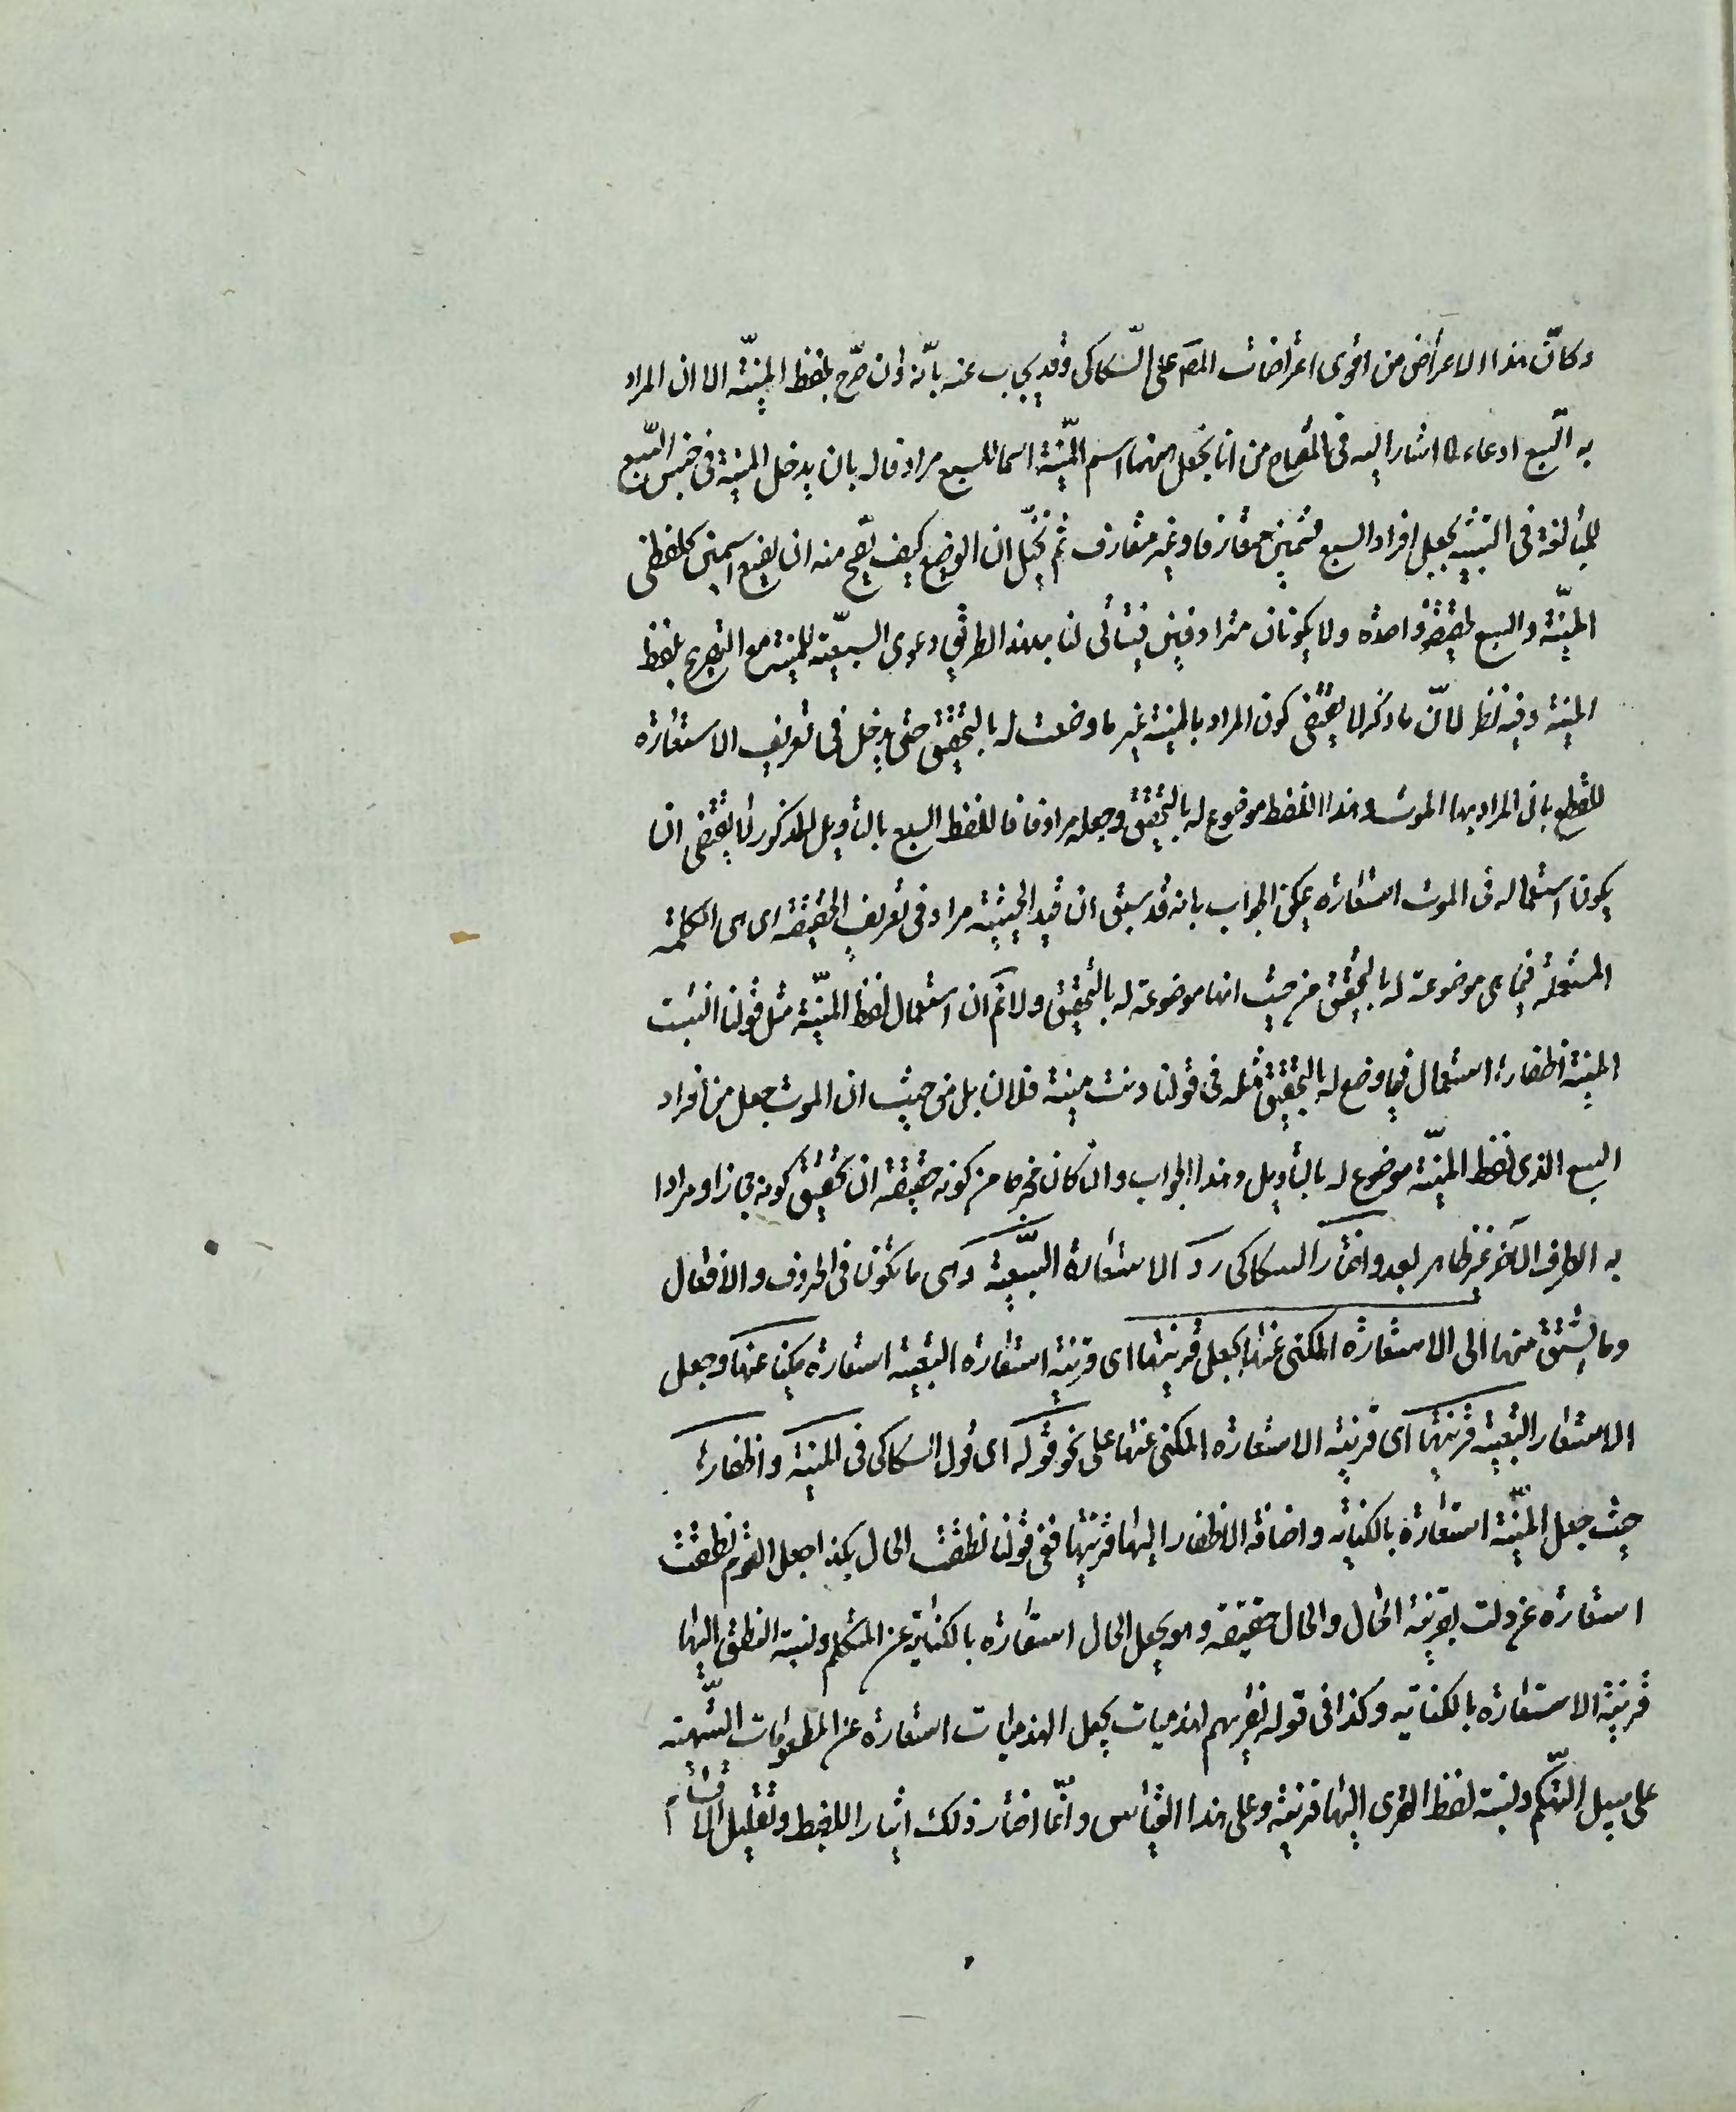 وكانّ هذا الاعراض من اقوى اعتراضات المص على السّكاكى وقد يجاب عنه بانّه وان صرّح بلفظ المنيّة الا ان المراد
به السّبع ادعاء كما اشار اليه فى المفتاح من انا نجعل ههنا اسم المنيّة اسما للسبع مرادفا له بان يدخل المنية فى جنس السّبع
للمبالغة فى التشبيه بجعل افراد السبع قسمين متعارفا وغير متعارف ثم نخيّل ان الواضع كيف يصح منه ان يضع اسمين كلفظى
المنيّة والسبع لحقيقة واحدة ولا يكونان مترادفين فيتأتى لنا بهذا الطريق دعوى السبعيّة للمنية مع التصريح بلفظ
المنية وفيه نظر لانّ ما ذكر لا يقتضى كون المراد بالمنية غير ما وضعت له بالتحقيق حتى يدخل فى تعريف الاستعارة
للقطع بان المراد بها الموت وهذا اللفظ موضوع له بالتحقيق وجعله مرادفا للفظ السبع بالتأويل المذكور لا يقتضى ان
يكون استعماله فى الموت استعارة يمكن الجواب بانه قد سبق ان قيد الحيثية مراد فى تعريف الحقيقة اى هى الكلمة
المستعملة فيما هى موضوعة له بالتحقيق من حيث انها موضوعة له بالتحقيق ولا نم ان استعمال لفظ المنيّة مثل قولنا انشبت
المنية اظفارها استعمال فيما وضع له بالتحقيق مثله فى قولنا دنت منية فلان بل من حيث ان الموت جعل من افراد
السبع الذى لفظ المنيّة موضوع له بالتأويل وهذا الجواب وان كان مخرجا من كونه حقيقة ان تحقيق كونه مجازا ومرادا
به الطرف الآخر غير ظاهر بعد واختار السكاكى رد الاستعارة التبعيّة وهى ما تكون فى الحروف والافعال
وما يشتق منها الى الاستعارة المكنى عنها بجعل قرينتها اى قرينة استعارة التبعية استعارة مكنيا عنها وجعل
الاستعار التبعية قرينتها اى قرينة الاستعارة المكنى عنها على نحو قوله اى قول السكاكى فى المنية واظفارها
حيث جعل المنيّة استعارة بالكناية واضافة الاظفار اليها قرينتها ففى قولنا نطقت الحال بكذا جعل القوم نطقت
استعارة عن دلت بقرينة الحال والحال حقيقة وهو يجعل الحال استعارة بالكناية عن المتكلم ونسبة النطق اليها
قرينة الاستعارة بالكناية وكذا فى قوله نقريهم لهذميات يجعل الهذميات استعارة عن المطعومات الشهية
على سبيل التهكم ونسبة لفظ القرى اليها قرينة وعلى هذا القياس وانّما اختار ذلك ايثارا للضبط وتقليل الاقسام